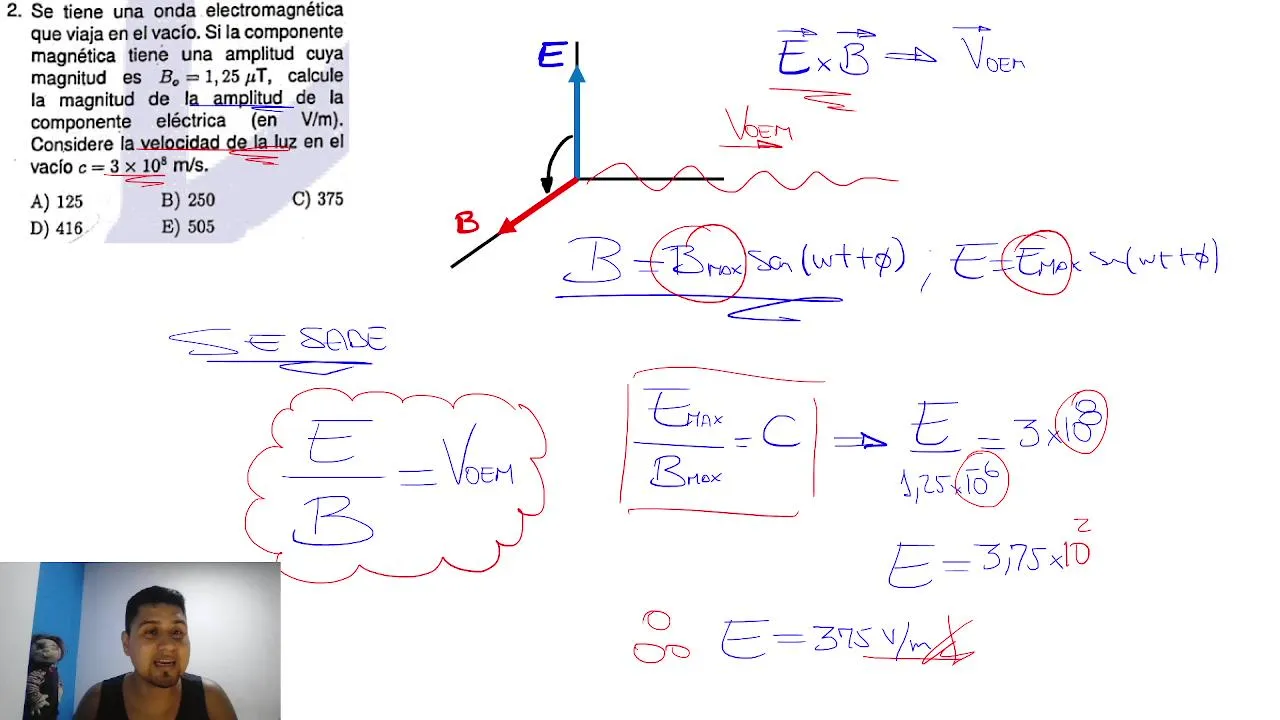 2. Se tiene una onda electromagnética
que viaja en el vacío. Si la componente
magnética tiene una amplitud cuya
magnitud es B₀ = 1,25 μT, calcule
la magnitud de la amplitud de la
componente eléctrica (en V/m).
Considere la velocidad de la luz en el
vacío c = 3 × 10⁸ m/s.
A) 125 B) 250 C) 375
D) 416 E) 505
E
B
E⃗ × B⃗ ⇒ V⃗OEM
VOEM
B = BMAX sen(wt+φ) ; E = EMAX sn(wt+φ)
SE SABE
E/B = VOEM
EMAX/BMAX = C ⇒ E/1,25×10⁻⁶ = 3×10⁸
E = 3,75×10²
E = 375 V/m